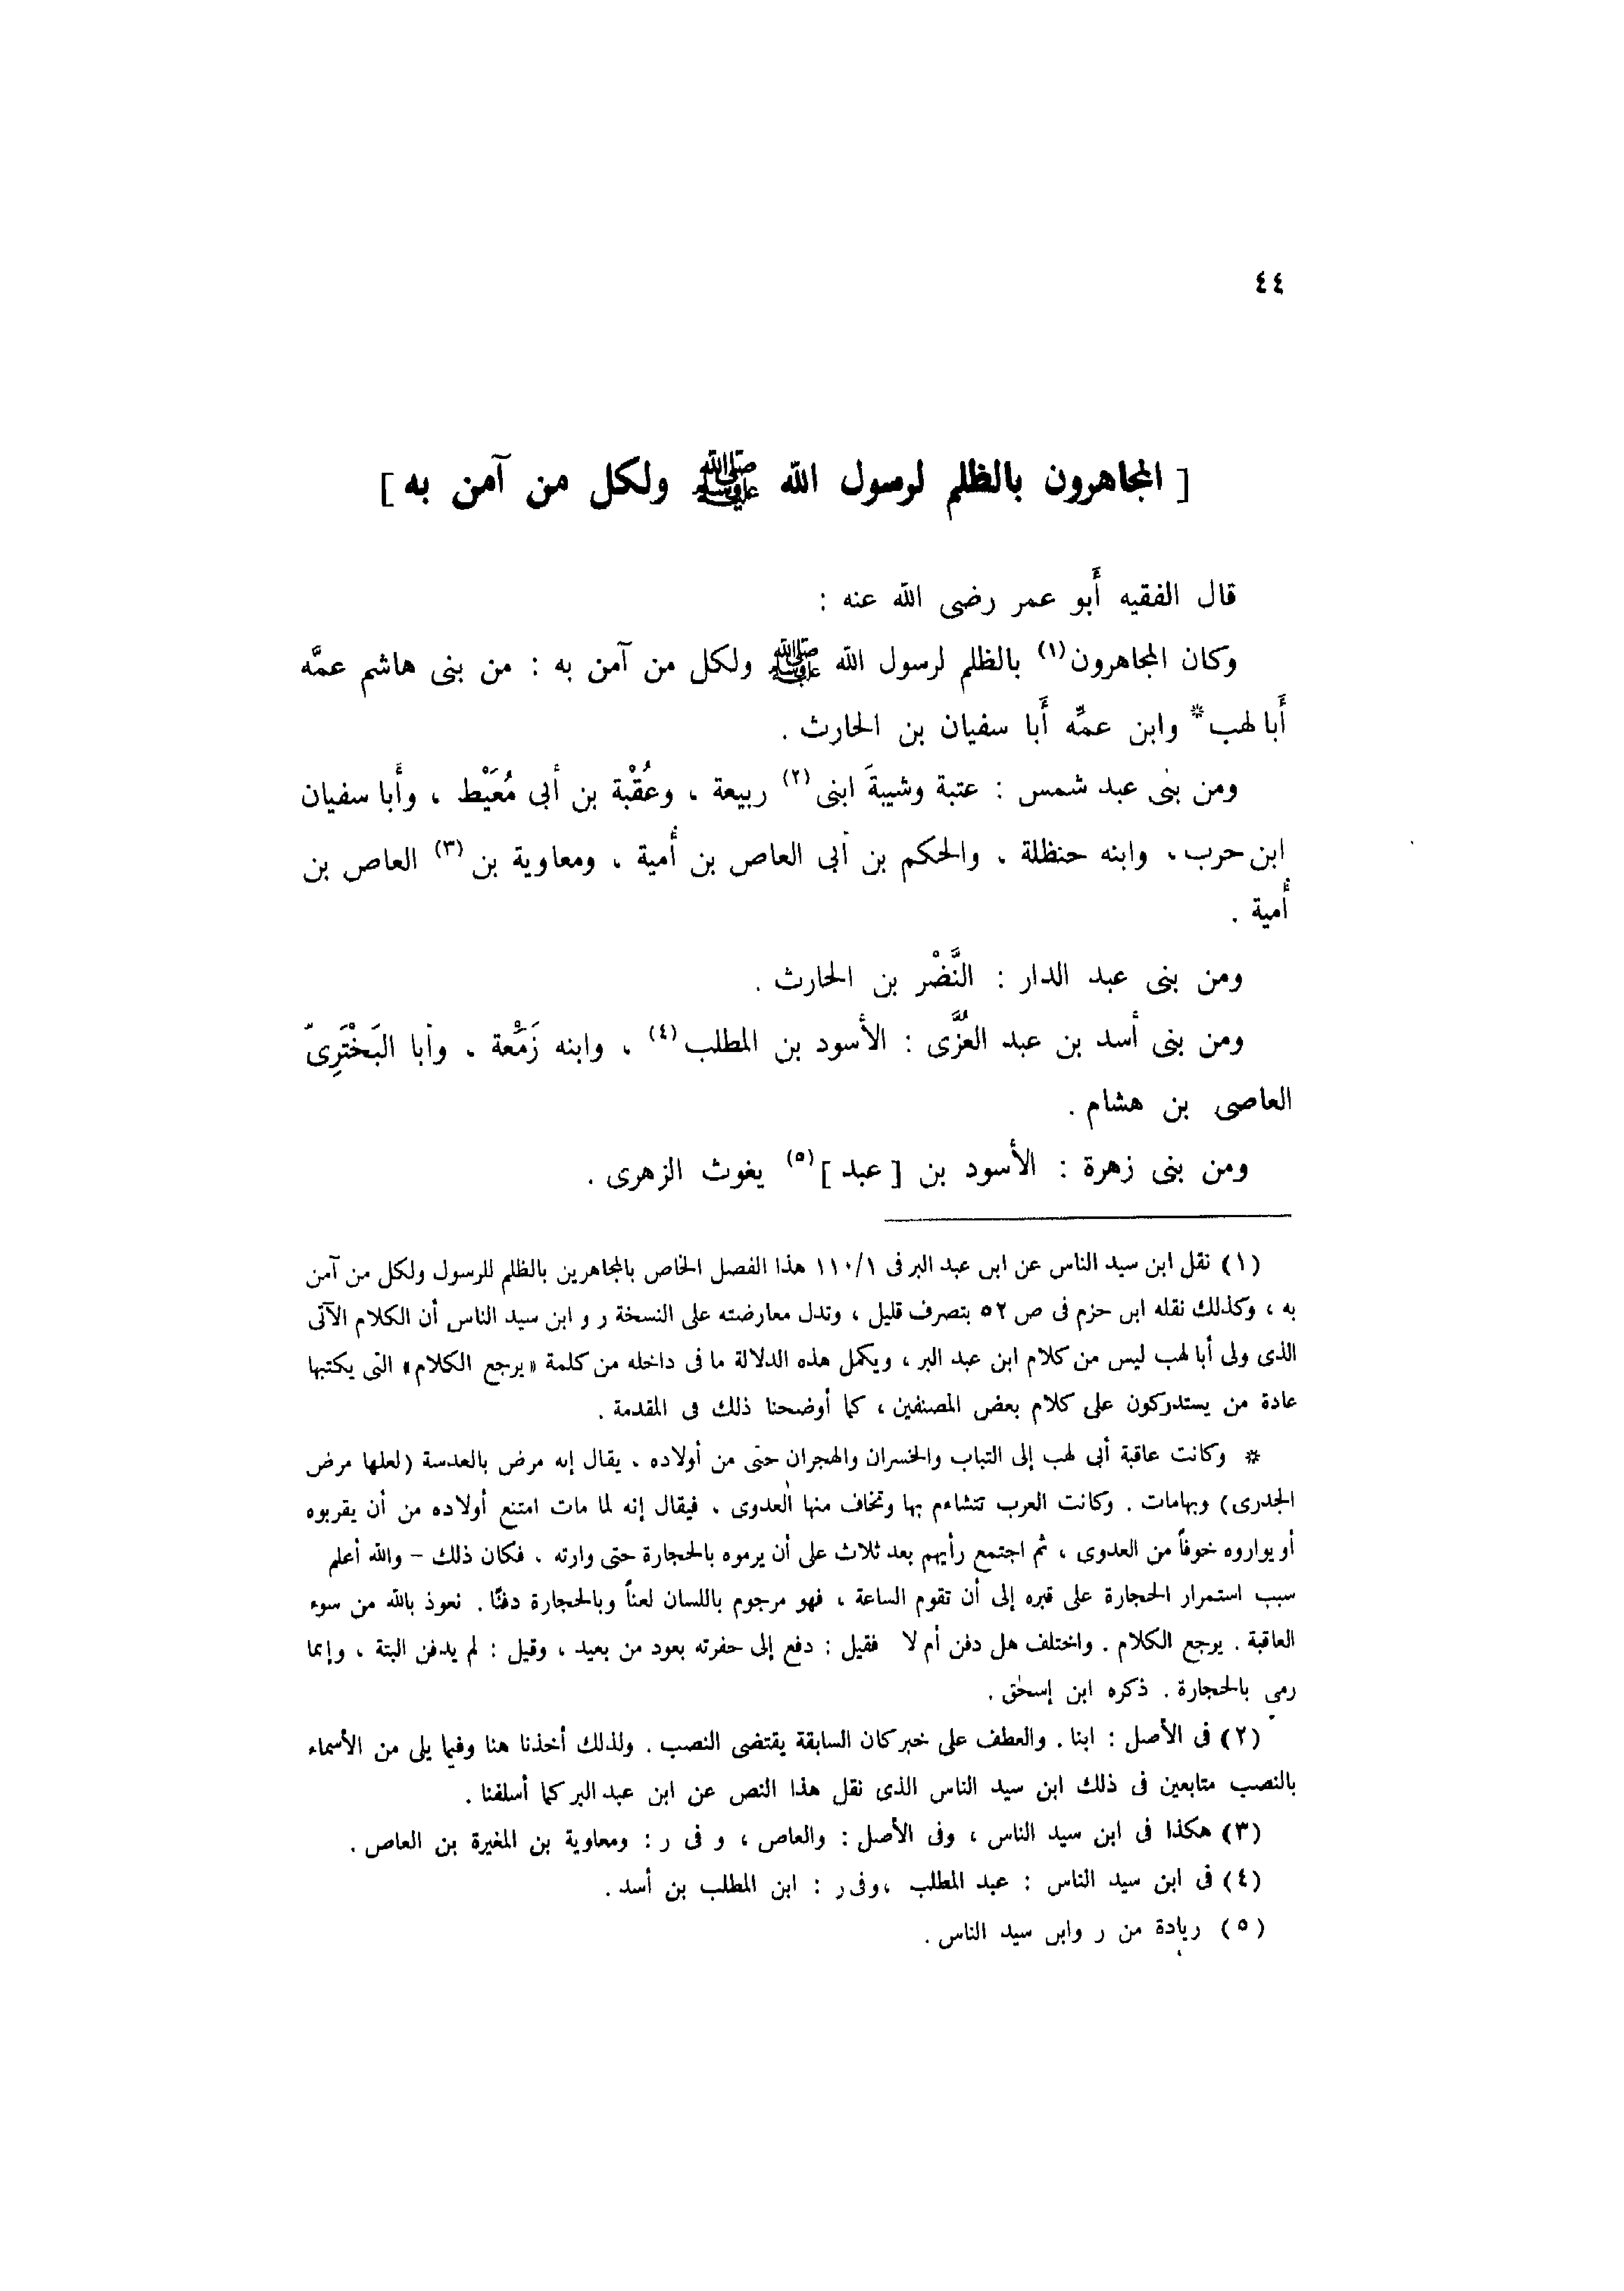 ٤٤
[ المجاهرون بالظلم لرسول الله ﷺ ولكل من آمن به ]
قال الفقيه أَبو عمر رضى الله عنه :
وكان المجاهرون(١) بالظلم لرسول الله ﷺ ولكل من آمن به : من بنى هاشم عمَّه
أَبا لهب* وابن عمِّه أَبا سفيان بن الحارث .
ومن بنى عبد شمس : عتبة وشيبةَ ابنى(٢) ربيعة ، وعُقْبة بن أبى مُعَيْط ، وأَبا سفيان
ابن حرب ، وابنه حنظلة ، والحكم بن أبى العاص بن أُمية ، ومعاوية بن(٣) العاص بن
أُمية .
ومن بنى عبد الدار : النَّضْر بن الحارث .
ومن بنى أسد بن عبد العُزَّى : الأسود بن المطلب(٤) ، وابنه زَمْعَة ، وأبا البَخْتَرِىّ
العاصى بن هشام .
ومن بنى زهرة : الأسود بن [ عبد ](٥) يغوث الزهرى .
(١) نقل ابن سيد الناس عن ابن عبد البر فى ١/١١٠ هذا الفصل الخاص بالمجاهرين بالظلم للرسول ولكل من آمن
به ، وكذلك نقله ابن حزم فى ص ٥٢ بتصرف قليل ، وتدل معارضته على النسخة ر و ابن سيد الناس أن الكلام الآتى
الذى ولى أبا لهب ليس من كلام ابن عبد البر ، ويكمل هذه الدلالة ما فى داخله من كلمة «يرجع الكلام» التى يكتبها
عادة من يستدركون على كلام بعض المصنفين ، كما أوضحنا ذلك فى المقدمة .
* وكانت عاقبة أبى لهب إلى التباب والخسران والهجران حتى من أولاده ، يقال إنه مرض بالعدسة (لعلها مرض
الجدرى) وبهامات . وكانت العرب تتشاءم بها وتخاف منها العدوى ، فيقال إنه لما مات امتنع أولاده من أن يقربوه
أو يواروه خوفاً من العدوى ، ثم اجتمع رأيهم بعد ثلاث على أن يرموه بالحجارة حتى وارته . فكان ذلك - والله أعلم
سبب استمرار الحجارة على قبره إلى أن تقوم الساعة ، فهو مرجوم باللسان لعناً وبالحجارة دفنًا . نعوذ بالله من سوء
العاقبة . يرجع الكلام . واختلف هل دفن أم لا فقيل : دفع إلى حفرته بعود من بعيد ، وقيل : لم يدفن البتة ، وإنما
رمى بالحجارة . ذكره ابن إسحٰق .
(٢) فى الأصل : ابنا . والعطف على خبر كان السابقة يقتضى النصب . ولذلك أخذنا هنا وفيما يلى من الأسماء
بالنصب متابعين فى ذلك ابن سيد الناس الذى نقل هذا النص عن ابن عبد البر كما أسلفنا .
(٣) هكذا فى ابن سيد الناس ، وفى الأصل : والعاص ، و فى ر : ومعاوية بن المغيرة بن العاص .
(٤) فى ابن سيد الناس : عبد المطلب ، وفى ر : ابن المطلب بن أسد .
(٥) زيادة من ر وابن سيد الناس .